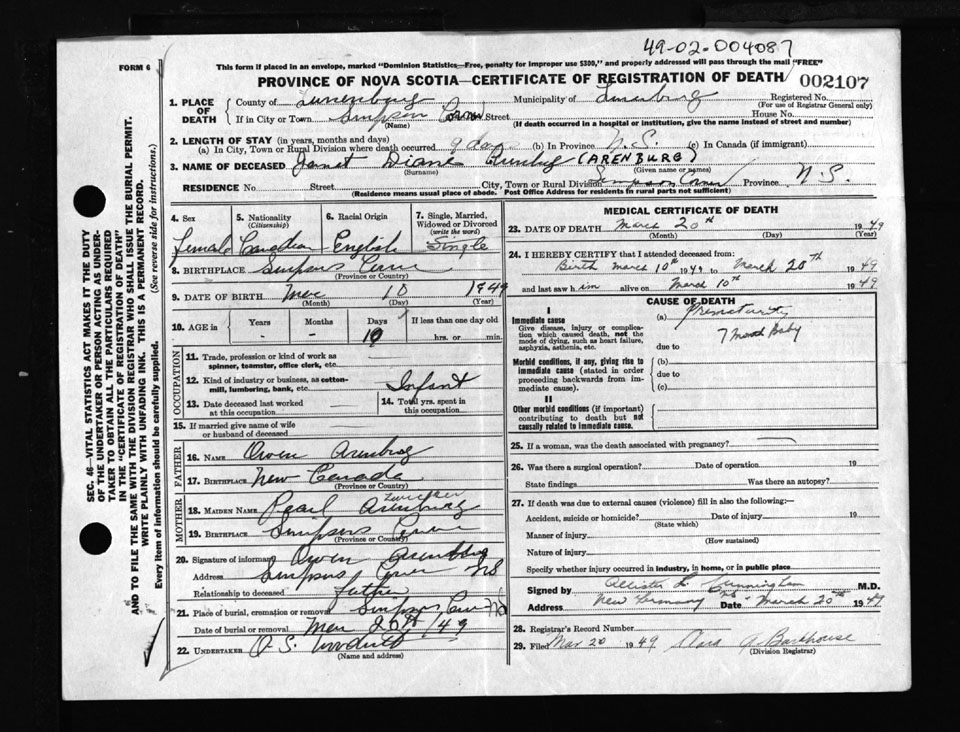 49-02-004087
FORM 6
This form if placed in an envelope, marked "Dominion Statistics—Free, penalty for improper use $300," and properly addressed will pass through the mail "FREE"
PROVINCE OF NOVA SCOTIA—CERTIFICATE OF REGISTRATION OF DEATH 002107
1. PLACE OF DEATH
County of Lunenburg Municipality of Lunenburg Registered No.
(For use of Registrar General only)
If in City or Town Simpson Corner Street House No.
(Name) (If death occurred in a hospital or institution, give the name instead of street and number)
2. LENGTH OF STAY (in years, months and days)
(a) In City, Town or Rural Division where death occurred 9 days (b) In Province N.S. (c) In Canada (if immigrant)
3. NAME OF DECEASED Janet Diane (ARENBURG)
(Surname) (Given name or names)
RESIDENCE No. Street City, Town or Rural Division Simpsons Corner Province N.S.
(Residence means usual place of abode. Post Office Address for residents in rural parts not sufficient)
4. Sex
Female
5. Nationality
(Citizenship)
Canadian
6. Racial Origin
English
7. Single, Married, Widowed or Divorced
(write the word)
Single
8. BIRTHPLACE Simpsons Corner
(Province or Country)
9. DATE OF BIRTH Mar 10 1949
(Month) (Day) (Year)
10. AGE in Years Months Days If less than one day old
- - 10 hrs. or min.
OCCUPATION
11. Trade, profession or kind of work as spinner, teamster, office clerk, etc.
12. Kind of industry or business, as cotton-mill, lumbering, bank, etc. Infant
13. Date deceased last worked at this occupation
14. Total yrs. spent in this occupation
15. If married give name of wife or husband of deceased
FATHER
16. NAME Owen Arenburg
17. BIRTHPLACE New Canada
(Province or Country)
MOTHER
18. MAIDEN NAME Pearl Arenburg
19. BIRTHPLACE Simpsons Corner
(Province or Country)
20. Signature of informant Owen Arenburg
Address Simpsons Corner NS
Relationship to deceased father
21. Place of burial, cremation or removal Simpsons Corner NS
Date of burial or removal Mar 20th/49
22. UNDERTAKER O.S.
(Name and address)
MEDICAL CERTIFICATE OF DEATH
23. DATE OF DEATH March 20th 1949
(Month) (Day)
24. I HEREBY CERTIFY that I attended deceased from:
Birth March 10th 1949 to March 20th 1949
and last saw him alive on March 10th 1949
CAUSE OF DEATH
I
Immediate cause (a) Prematurity
Give disease, injury or complication which caused death, not the mode of dying, such as heart failure, asphyxia, asthenia, etc.
7 Month Baby
due to
Morbid conditions, if any, giving rise to immediate cause (stated in order proceeding backwards from immediate cause).
(b)
due to
(c)
II
Other morbid conditions (if important) contributing to death but not causally related to immediate cause.
25. If a woman, was the death associated with pregnancy?
26. Was there a surgical operation? Date of operation 19
State findings Was there an autopsy?
27. If death was due to external causes (violence) fill in also the following:—
Accident, suicide or homicide? Date of injury 19
(State which)
Manner of injury
(How sustained)
Nature of injury
Specify whether injury occurred in industry, in home, or in public place
Signed by Allister L. Cunningham M.D.
Address New Germany NS Date March 20th 1949
28. Registrar's Record Number
29. Filed Mar 20 1949 A. Barkhouse
(Division Registrar)
SEC. 46—VITAL STATISTICS ACT MAKES IT THE DUTY
OF THE UNDERTAKER OR PERSON ACTING AS UNDER-
TAKER TO OBTAIN ALL THE PARTICULARS REQUIRED
IN THE "CERTIFICATE OF REGISTRATION OF DEATH"
AND TO FILE THE SAME WITH THE DIVISION REGISTRAR WHO SHALL ISSUE THE BURIAL PERMIT.
WRITE PLAINLY WITH UNFADING INK. THIS IS A PERMANENT RECORD.
Every item of information should be carefully supplied. (See reverse side for instructions.)